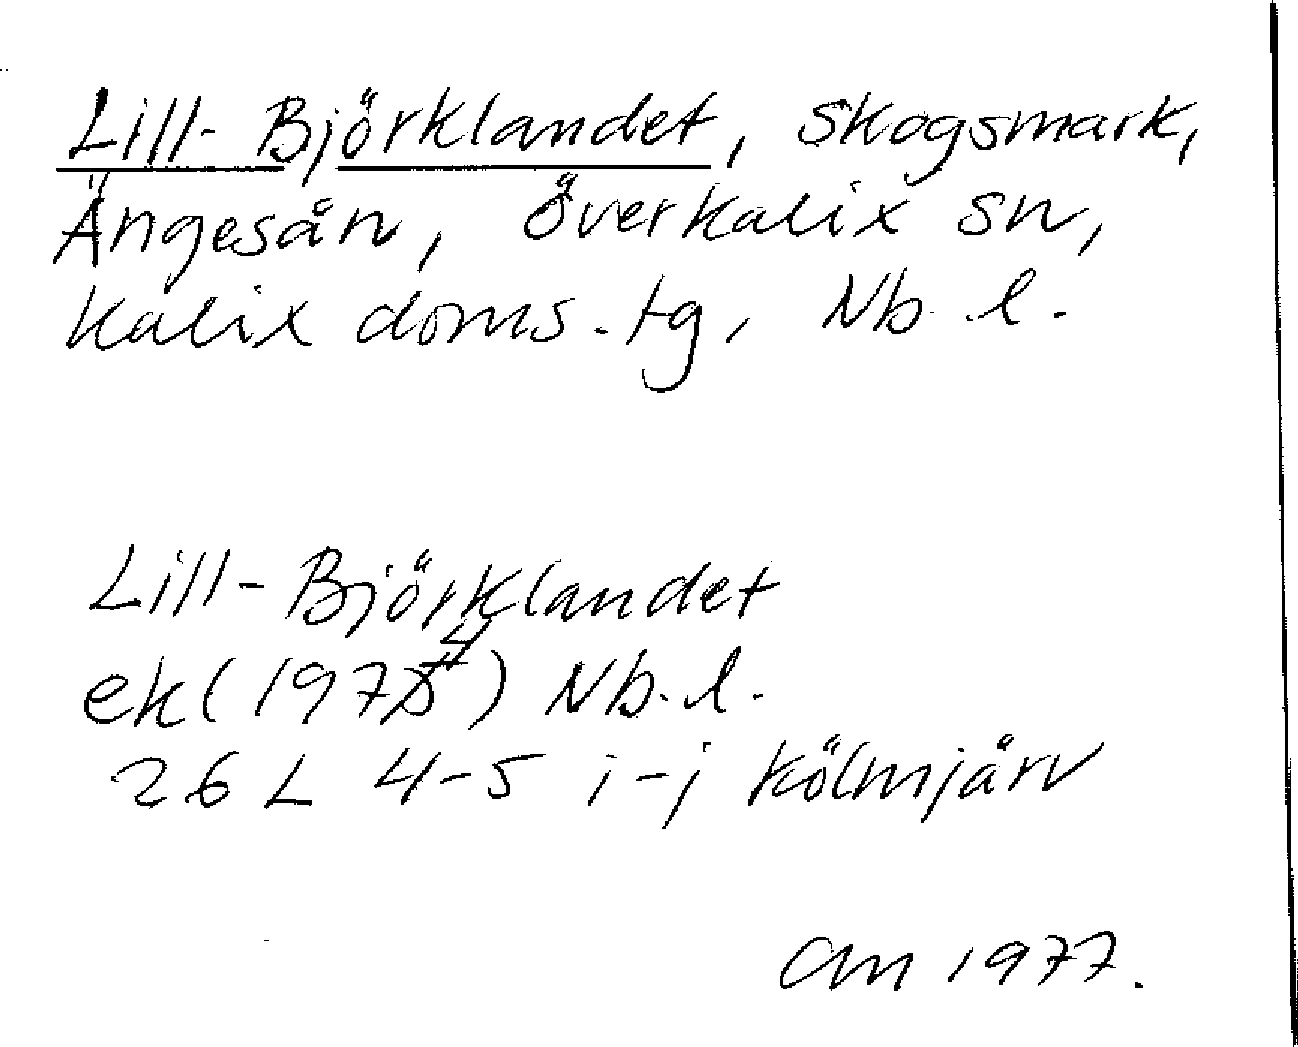 Lill-Björklandet, skogsmark,
Ängesån, Överkalix sn,
Kalix doms.tg, Nb.l.
Lill-Björklandet
ek(1974) Nb.l.
26 L 4-5 i-j Kölmjärv
1977.